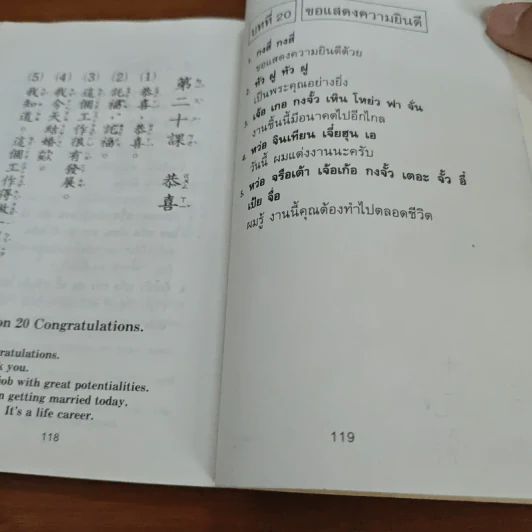 第二十課　恭喜
(1) 恭喜，恭喜。
(2) 託福，託福。
(3) 這個工作很有發展。
(4) 我今天結婚歐。
(5) 我知道。這個工作得做
on 20 Congratulations.
ratulations.
k you.
job with great potentialities.
n getting married today.
It's a life career.
118
บทที่ 20 ขอแสดงความยินดี
1. กงสี่ กงสี่
ขอแสดงความยินดีด้วย
2. ทัว ฝู ทัว ฝู
เป็นพระคุณอย่างยิ่ง
3. เจ้อ เกอ กงจั้ว เหิน โหย่ว ฟา จั่น
งานชิ้นนี้มีอนาคตไปอีกไกล
4. หว่อ จินเทียน เจี๋ยฮุน เอ
วันนี้ ผมแต่งงานนะครับ
5. หว่อ จรือเต้า เจ้อเก้อ กงจั้ว เตอะ จั้ว อี่
เป้ย จื่อ
ผมรู้ งานนี้คุณต้องทำไปตลอดชีวิต
119